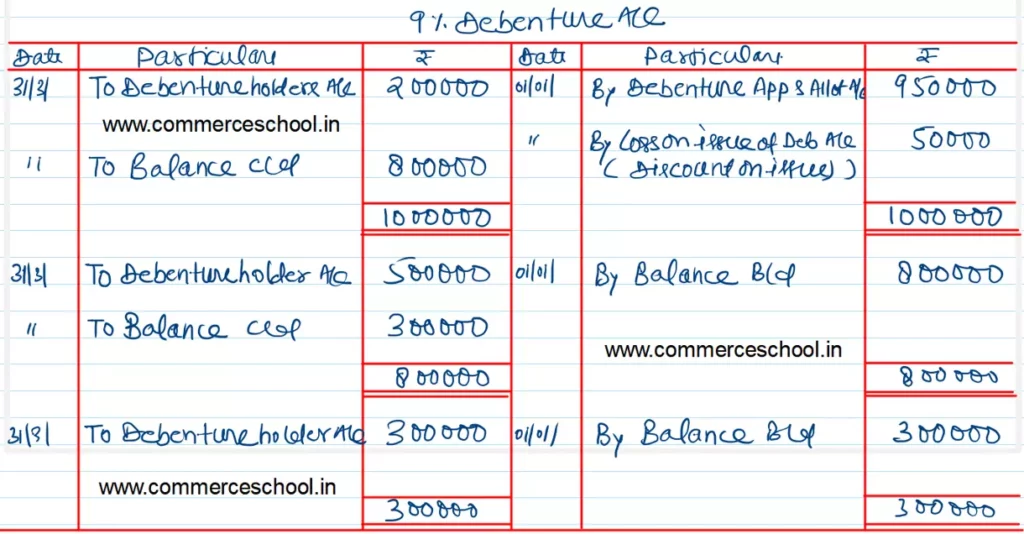 9% Debenture A/c
Date Particulars ₹ Date Particulars ₹
31/3/ To Debentureholders A/c 200000 01/01/ By Debenture App & Allot A/c 950000
www.commerceschool.in
" By Loss on issue of Deb A/c 50000
" To Balance c/d 800000 (Discount on issues)
1000000 1000000
31/3/ To Debentureholder A/c 500000 01/01/ By Balance B/d 800000
" To Balance c/d 300000
www.commerceschool.in
800000 800000
31/3/ To Debentureholder A/c 300000 01/01/ By Balance B/d 300000
www.commerceschool.in
300000 300000